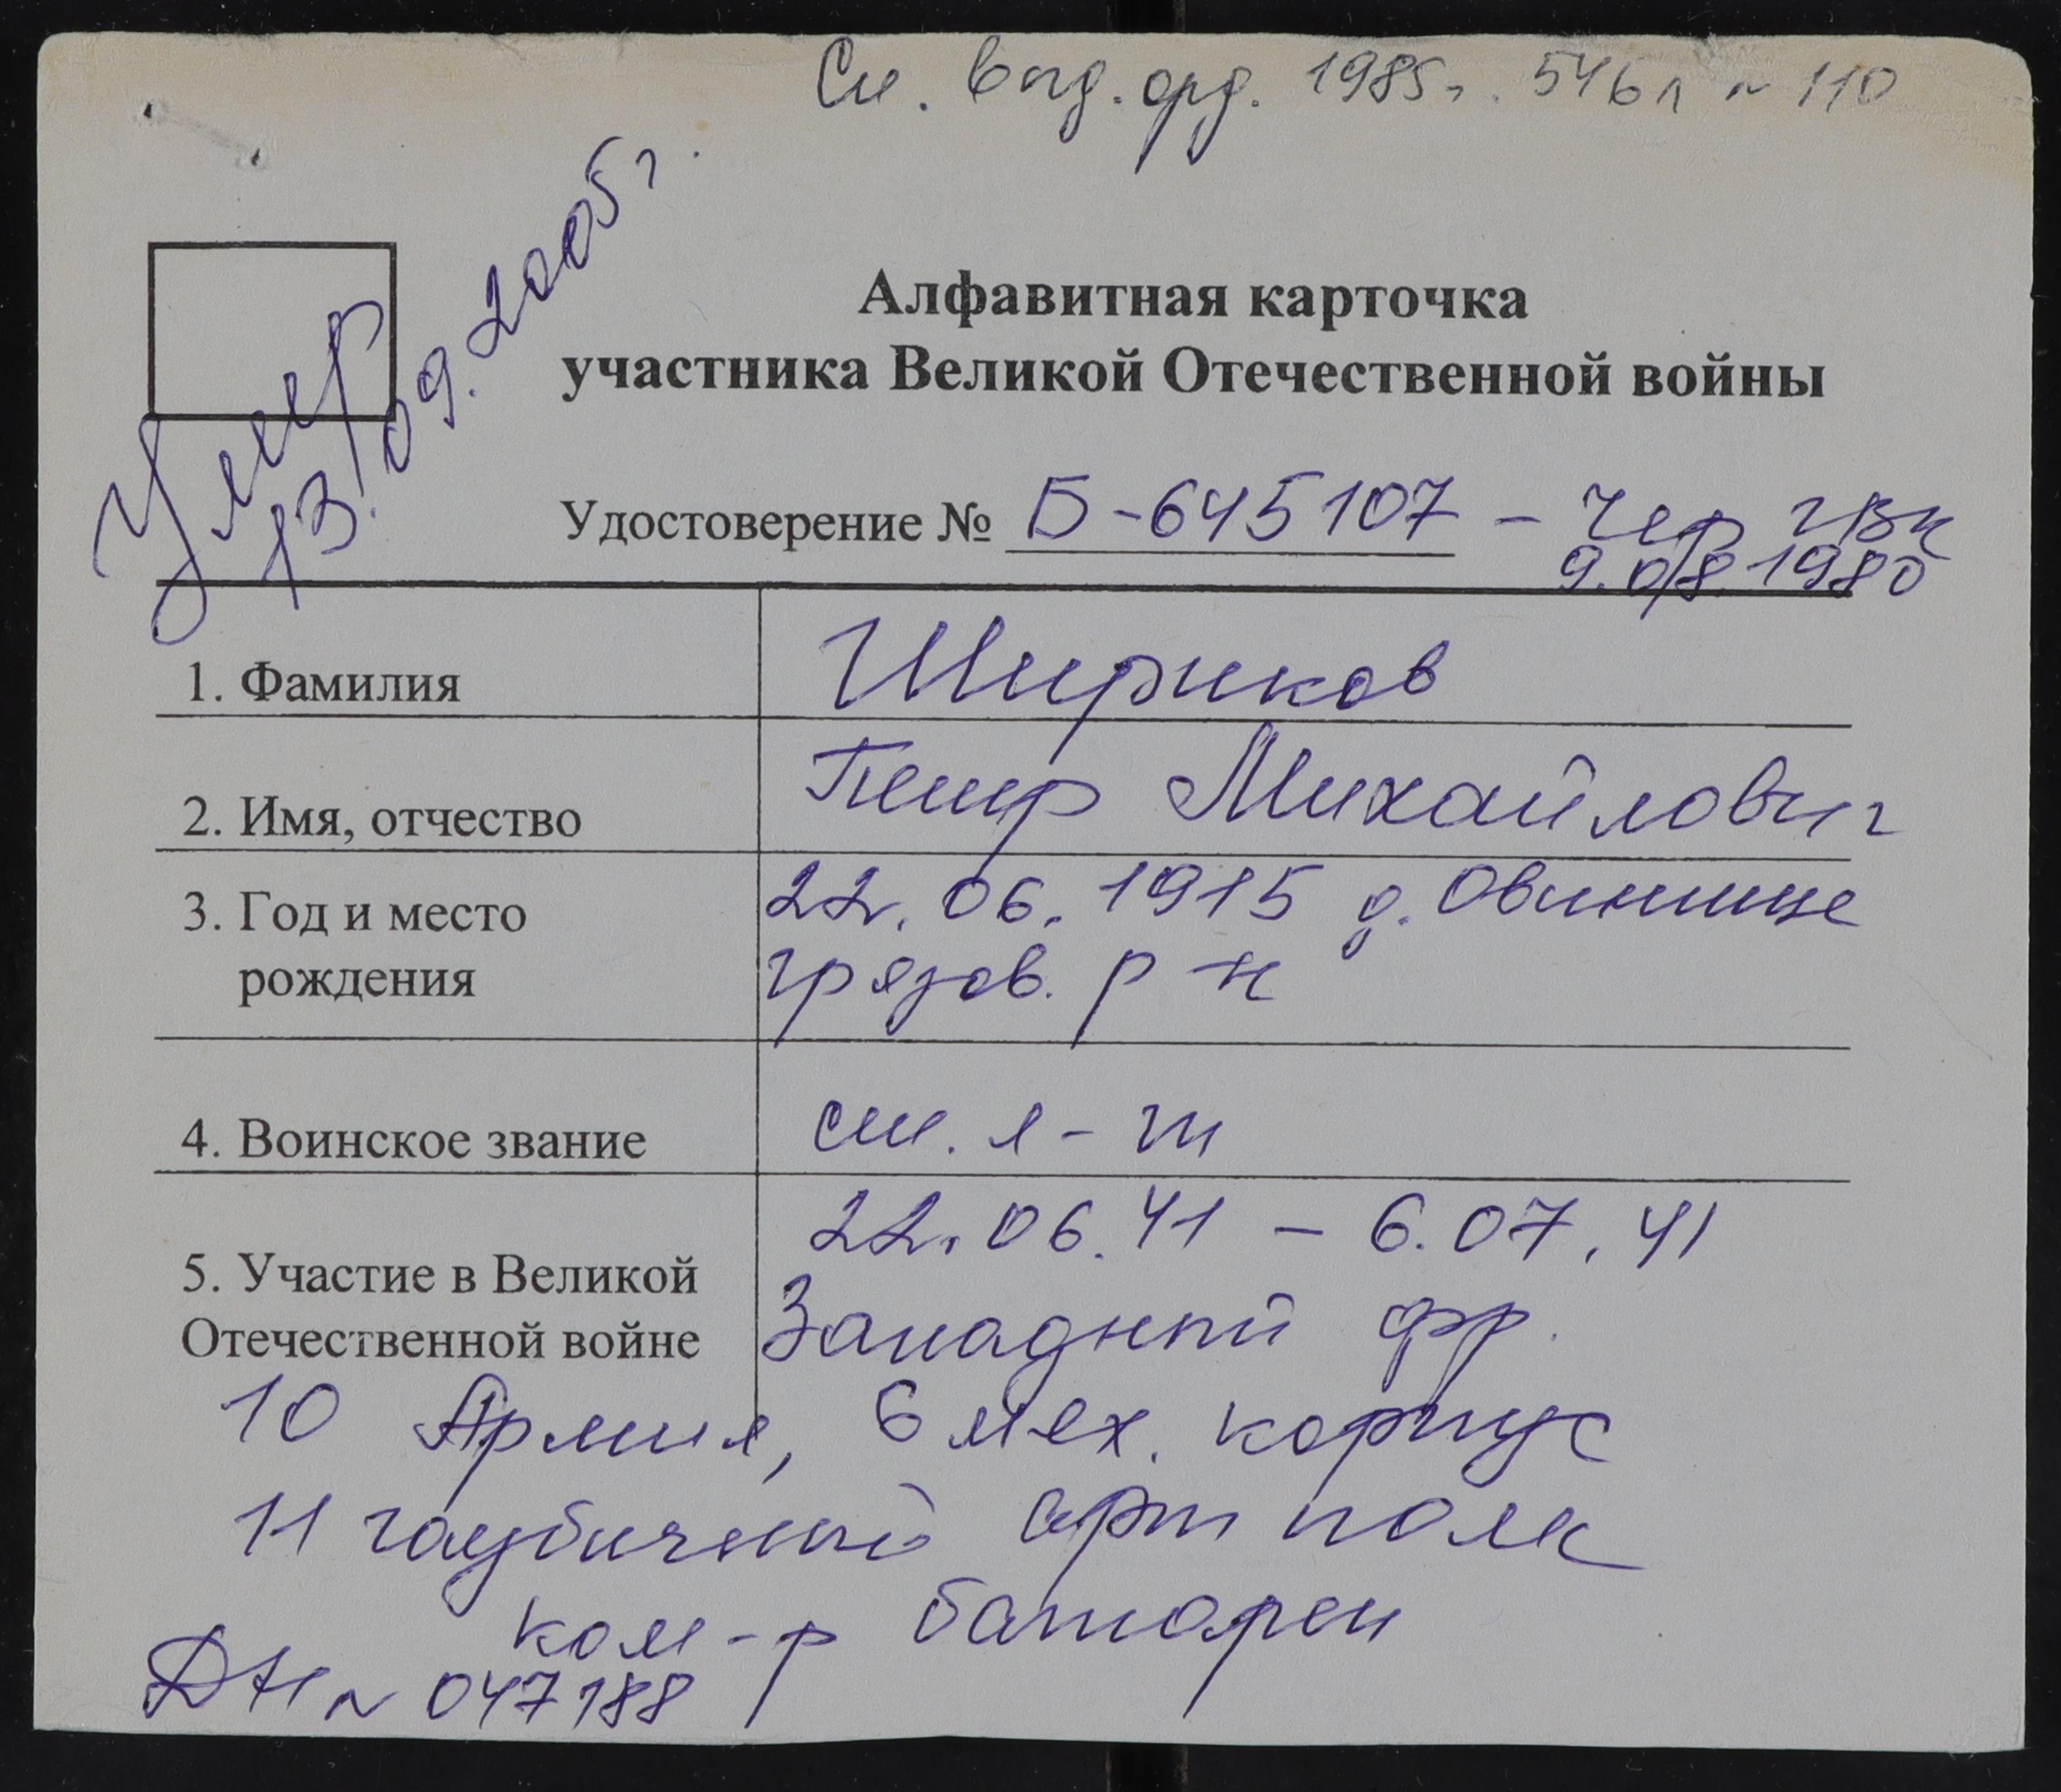 См. выд. орд. 1985 г. 546 л № 110
Умер
13.09.2005 г.
Алфавитная карточка
участника Великой Отечественной войны
Удостоверение № Б-645107 - Чер ГВК
9.08.1980
1. Фамилия Шириков
2. Имя, отчество Петр Михайлович
3. Год и место 22.06.1915 д. Овинище
рождения грязов. р-н
4. Воинское звание ст. л-т
22.06.41 - 6.07.41
5. Участие в Великой
Отечественной войне Западный фр.
10 Армия, 6 мех. корпус
11 гаубичный арт полк
ком-р батареи
№ 047188